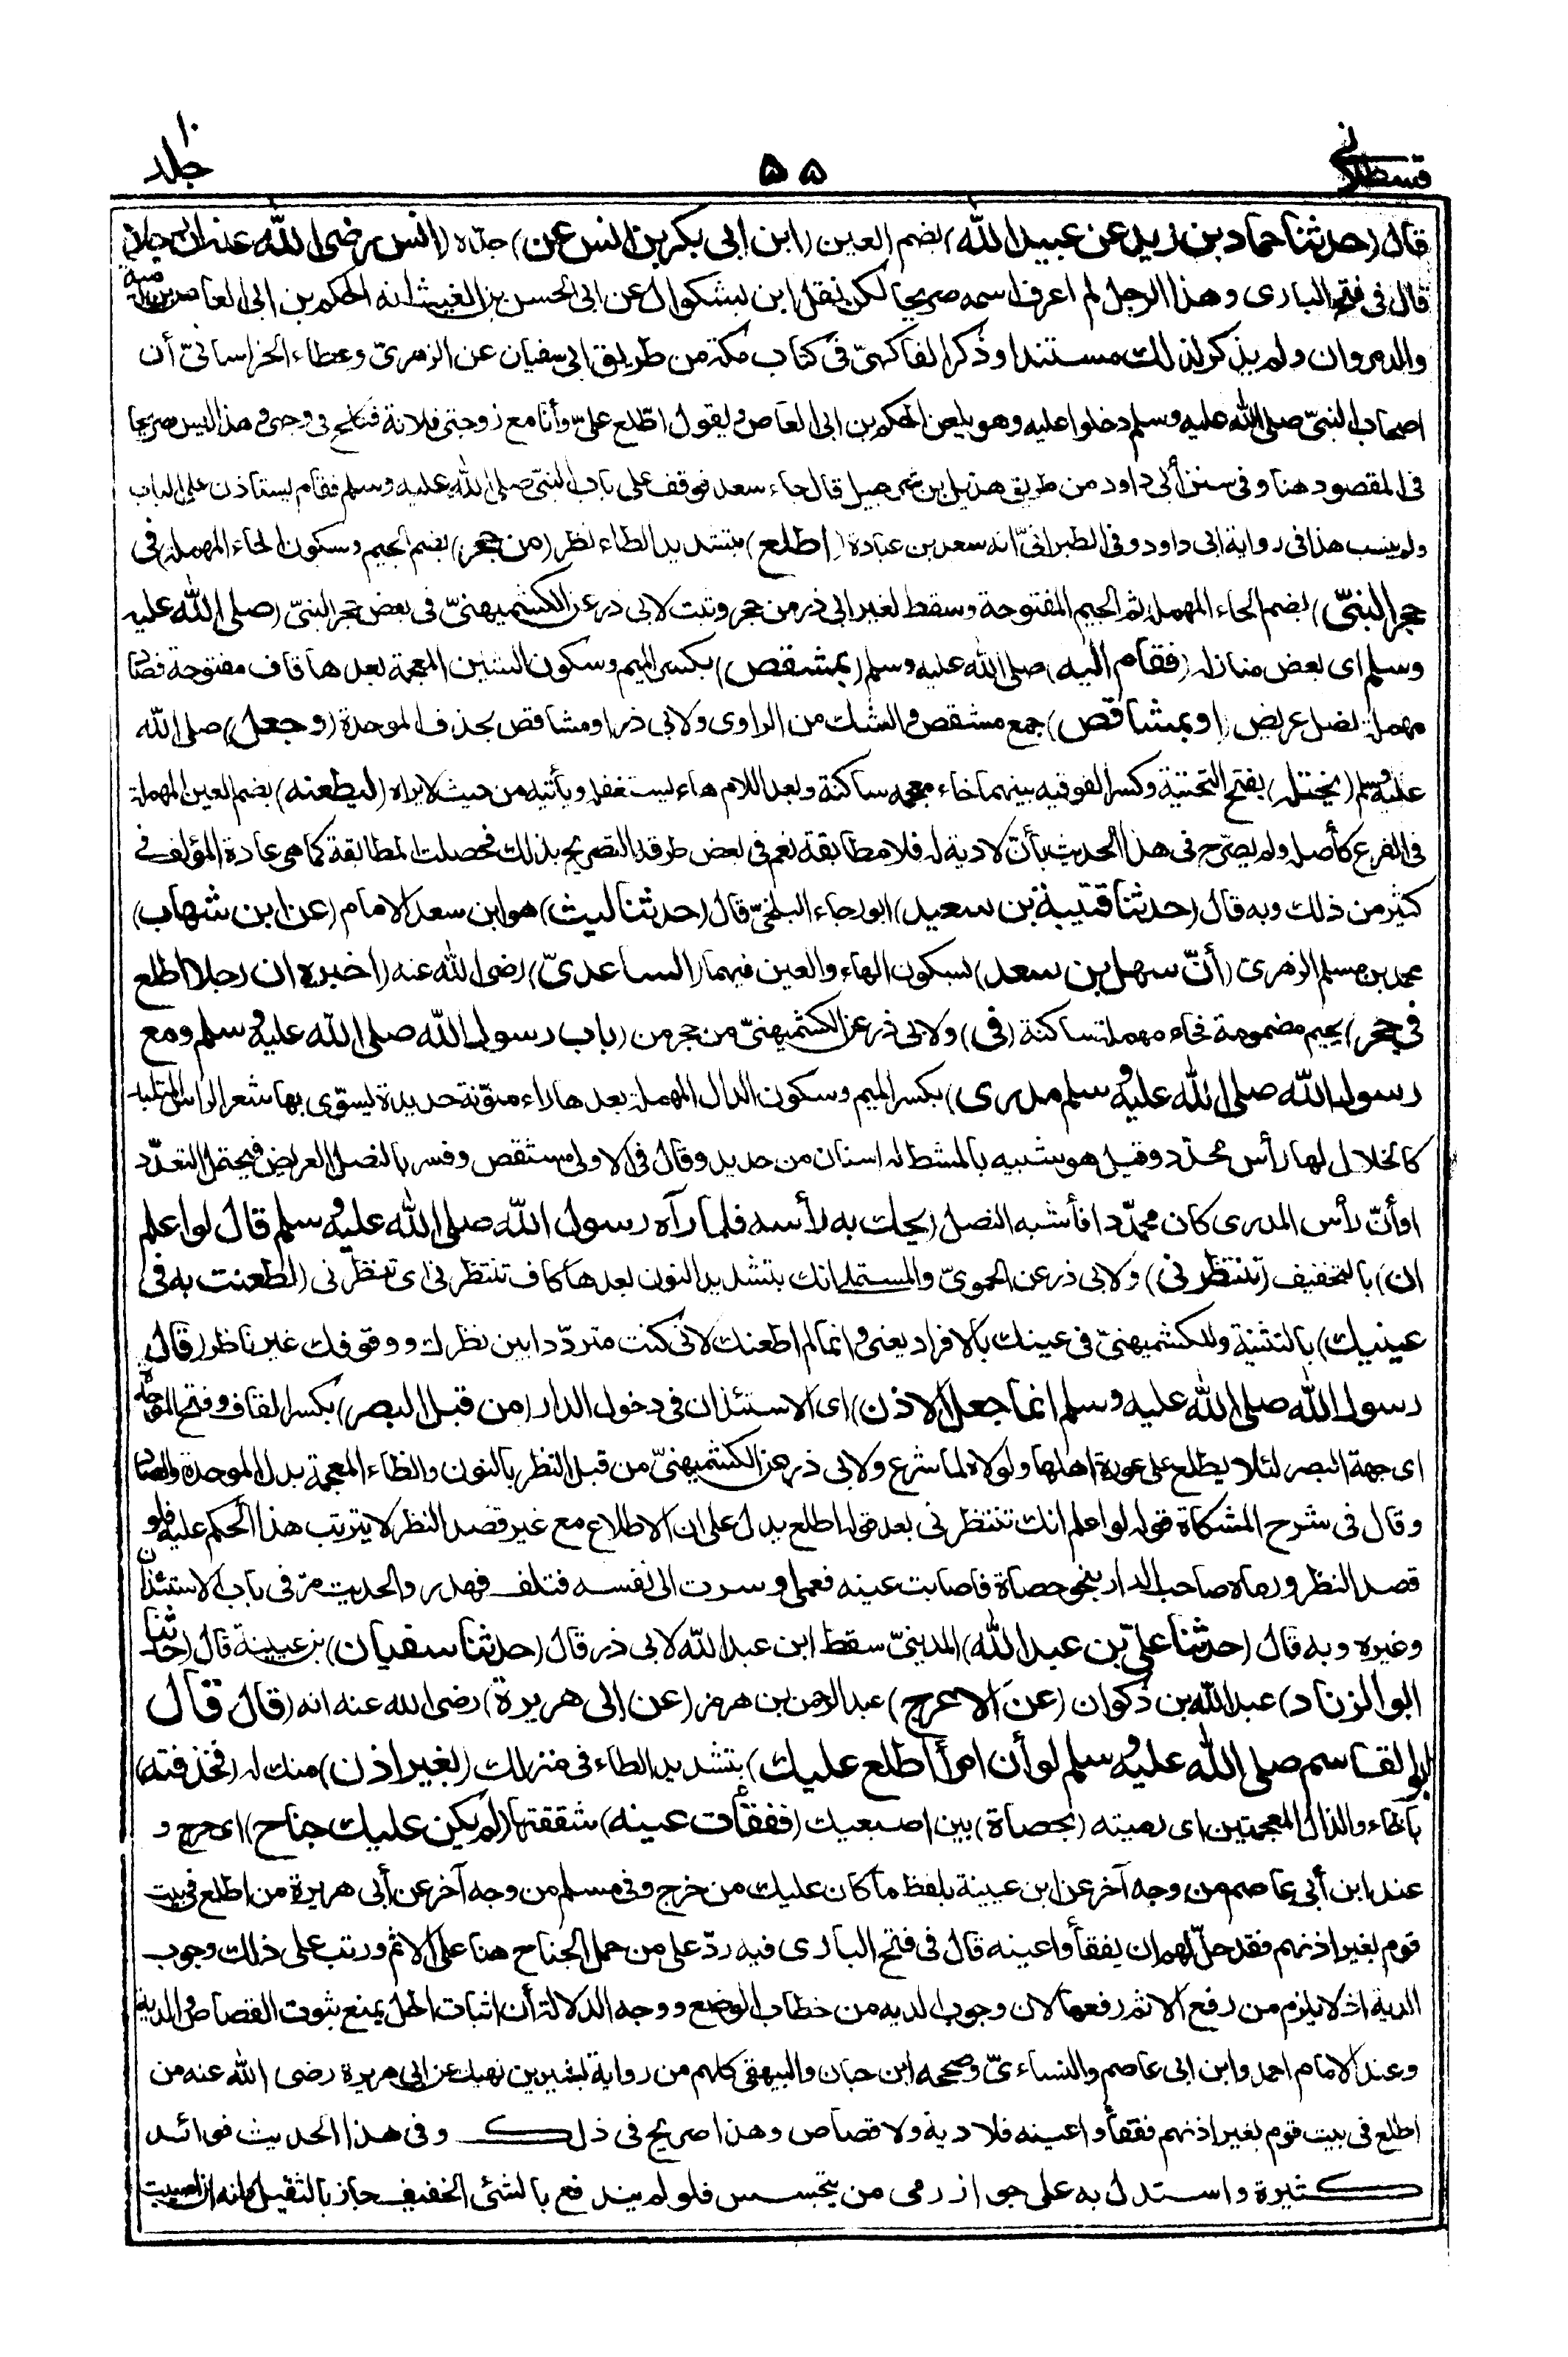 قسطلانی
۵۵
جلد ۱۰
قال (حدثنا حماد بن زيد عن عبيد الله) بضم العين (ابن ابى بكر بن انس عن) جدّه (انس رضى الله عنه ان رجلا)
قال فى فتح البارى وهذا الرجل لم اعرف اسمه صريحا لكن نقل ابن بشكوال عن ابى الحسن بن الغيث انه الحكم بن ابى العاص بن امية
والد مروان ولم يذكر لذلك مستندا وذكر الفاكهىّ فى كتاب مكة من طريق ابى سفيان عن الزهرىّ وعطاء الخراسانىّ أن
اصحاب النبىّ صلى الله عليه وسلم دخلوا عليه وهو يلعن الحكم بن ابى العاص ويقول اطّلع علىّ وأنا مع زوجتى فلانة فكلح فى وجهى وهذا ليس صريحا
فى المقصود هنا وفى سنن أبى داود من طريق هذيل بن شرحبيل قال جاء سعد فوقف على باب النبىّ صلى الله عليه وسلم فقام يستاذن على الباب
ولم ينسب هذا فى رواية ابى داود وفى الطبرانىّ انه سعد بن عبادة (اطلع) بتشديد الطاء نظر (من جحر) بضم الجيم وسكون الحاء المهملة (فى
حجر النبىّ) بضم الحاء المهملة ثم الجيم المفتوحة وسقط لغير ابى ذر من جحر وثبت لابى ذر عن الكشميهنىّ فى بعض حجر النبىّ (صلى الله عليه
وسلم) اى بعض منازله (فقام اليه) صلى الله عليه وسلم (بمشقص) بكسر الميم وسكون الشين المعجمة بعدها قاف مفتوحة فصاد
مهملة نصل عريض (او بمشاقص) جمع مشقص والشك من الراوى ولابى ذر او مشاقص بحذف الموحدة (وجعل) صلى الله
عليه وسلم (يختله) بفتح التحتية وكسر الفوقيه بينهما خاء معجمه ساكنة وبعد اللام هاء يستغفله ويأتيه من حيث لا يراه (ليطعنه) بضم العين المهملة
فى الفرع كأصله ولم يصرّح فى هذا الحديث بأن لا دية له فلا مطابقة نعم فى بعض طرقه التصريح بذلك فحصلت المطابقة كما هى عادة المؤلف فى
كثير من ذلك وبه قال (حدثنا قتيبة بن سعيد) ابو رجاء البلخىّ قال (حدثنا ليث) هو ابن سعد الامام (عن ابن شهاب)
محمد بن مسلم الزهرىّ (أنّ سهل بن سعد) بسكون الهاء والعين فيهما (الساعدىّ) رضى الله عنه (اخبره ان رجلا اطلع
فى جحر) بجيم مضمومة فحاء مهملة ساكنة (فى) ولابى ذر عن الكشميهنىّ من جحر من (باب رسول الله صلى الله عليه وسلم ومع
رسول الله صلى الله عليه وسلم مدرى) بكسر الميم وسكون الدال المهملة بعدها راء منوّنة حديدة يسوّى بها شعر الراس المتلبد
كالخلال لها رأس محدّد وقيل هو شبيه بالمشط له اسنان من حديد وقال فى الاولى مشقص وفسر بالنصل العريض فيحتمل التعدّد
او أنّ رأس المدرى كان محدّدا فأشبه النصل (يحك به رأسه فلما رآه رسول الله صلى الله عليه وسلم قال لو اعلم
ان) بالتخفيف (تنتظرنى) ولابى ذر عن الحموىّ والمستملى انك بتشديد النون بعدها كاف تنتظرنى اى تنظرنى (لطعنت به فى
عينيك) بالتثنية وللكشميهنىّ فى عينك بالافراد يعنى وانما لم اطعنك لانى كنت متردّدا بين نظرك ووقوفك غير ناظر (قال
رسول الله صلى الله عليه وسلم انما جعل الاذن) اى الاستئذان فى دخول الدار (من قبل البصر) بكسر القاف وفتح الموحدة
اى جهة البصر لئلا يطلع على عورة اهلها ولولاه لما شرع ولابى ذر عن الكشميهنىّ من قبل النظر بالنون والظاء المعجمة بدل الموحدة والصاد
وقال فى شرح المشكاة قوله لو اعلم انك تنتظرنى بعد قوله اطلع يدل على ان الاطلاع مع غير قصد النظر لا يترتب هذا الحكم عليه فلو
قصد النظر ورماه صاحب الدار بنحو حصاة فاصابت عينه فعمى او سرت الى نفسه فتلف فهدر والحديث مرّ فى باب الاستئذان
وغيره وبه قال (حدثنا علىّ بن عبد الله) المدينىّ سقط ابن عبد الله لابى ذر قال (حدثنا سفيان) بن عيينة قال (حدثنا
ابو الزناد) عبد الله بن ذكوان (عن الاعرج) عبد الرحمن بن هرمز (عن ابى هريرة) رضى الله عنه انه (قال قال
ابو القاسم صلى الله عليه وسلم لو أن امرأ اطلع عليك) بتشديد الطاء فى منزلك (بغير اذن) منك له (فخذفته)
بالخاء والذال المعجمتين اى رميته (بحصاة) بين اصبعيك (ففقأت عينه) شققتها (لم يكن عليك جناح) اى حرج و
عند ابن أبى عاصم من وجه آخر عن ابن عيينة بلفظ ما كان عليك من حرج وفى مسلم من وجه آخر عن أبى هريرة من اطلع فى بيت
قوم بغير اذنهم فقد حلّ لهم ان يفقأوا عينه قال فى فتح البارى فيه ردّ على من حمل الجناح هنا على الاثم ورتب على ذلك وجوب
الدية اذ لا يلزم من رفع الاثم رفعها لان وجوب الديه من خطاب الوضع ووجه الدلالة أن اثبات الحل يمنع ثبوت القصاص والدية
وعند الامام احمد وابن ابى عاصم والنساءىّ وصححه ابن حبان والبيهقى كلهم من رواية بشير بن نهيك عن ابى هريرة رضى الله عنه من
اطلع فى بيت قوم بغير اذنهم ففقأوا عينه فلا دية ولا قصاص وهذا صريح فى ذلك وفى هذا الحديث فوائد
كثيرة واستدل به على جواز رمى من يتجسس فلو لم يندفع بالشئ الخفيف جاز بالثقيل وانه ان اصيبت